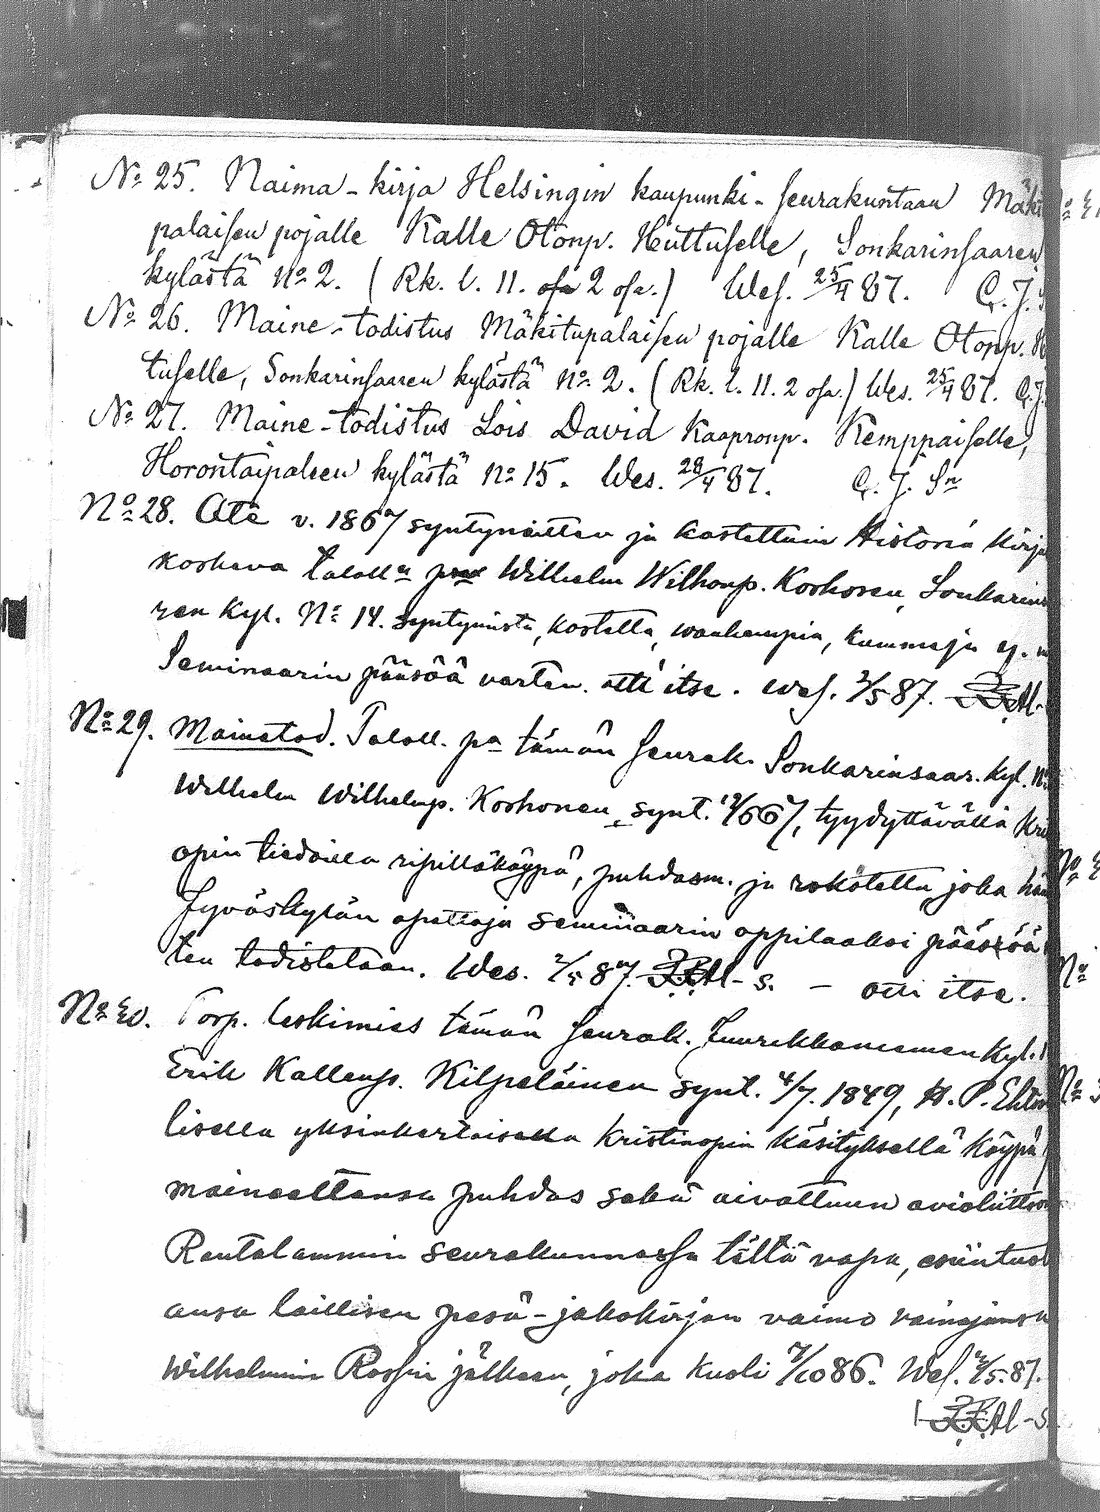 No 25. Naima-kirja Helsingin kaupunki-seurakuntaan Mäki
palaisen pojalle Kalle Otonp. Huttuselle, Sonkarinsaaren
kylästä No 2. (Rk. l. 11. 2 osa.) Wes. 25/4 87. C. J.
No 26. Maine-todistus Mäkitupalaisen pojalle Kalle Otonp. H
tuselle, Sonkarinsaaren kylästä No 2. (Rk. l. 11. 2 osa.) Wes. 25/4 87. C. J.
No 27. Maine-todistus Lois David Kaapronp. Kemppaiselle,
Horontaipaleen kylästä No 15. Wes. 28/4 87. C. J. Sn
No 28. Ote v. 1867 syntyneitten ja kastettuin Historia kirja
koskeva taloll. Wilhelm Wilhonp. Korhosen, Sonkarins
ren kyl. No 14. syntymistä, kastetta, wanhempia, kummeja y. m
Seminaarin pääsöä varten. otti itse. Wes. 2/5 87.
No 29. Mainetod. Taloll. pa tämän seurak. Sonkarinsaar. kyl. No
Wilhelm Wilhelmp. Korhonen, synt. /667, tyydyttävällä Kri
opin tiedoilla ripilläkäypä, puhdasm. ja rokotettu, joka hän
Jyväskylän opettaja seminaarin oppilaaksi pääsöä
ten todistetaan. Wes. 2/5 87. Al-s. – otti itse.
No 30. Torp. leskimies tämän seurak. Juurikkaniemen kyl.
Erik Kallenp. Kilpeläinen synt. 4/7. 1849, H. P. Ehtoo
lisella yksinkertaisella kristinopin käsityksellä käypä
maineeltansa puhdas sekä aivottuun avioliittoon
Rautalammin seurakunnassa tältä vapa, esiintuot
ansa laillisen pesä-jakokirjan vaimo vainajansa
Wilhelmiina Rossin jälkeen, joka kuoli 7/10 86. Wes. 2/5 87.
Al-s.